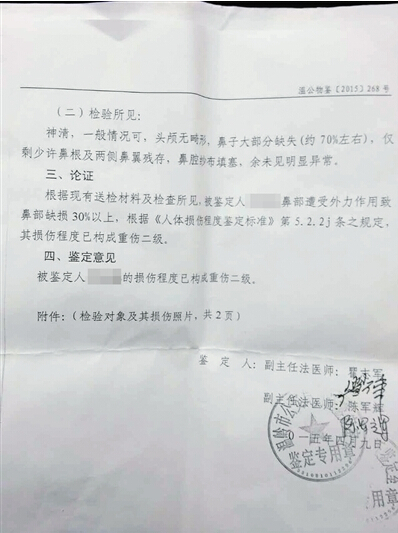 温公物鉴〔2015〕268号
（二）检验所见：
神清，一般情况可，头颅无畸形，鼻子大部分缺失(约70%左右)，仅
剩少许鼻根及两侧鼻翼残存，鼻腔纱布填塞，余未见明显异常。
三、论证
根据现有送检材料及检查所见，被鉴定人 鼻部遭受外力作用致
鼻部缺损30%以上，根据《人体损伤程度鉴定标准》第5.2.2j条之规定，
其损伤程度已构成重伤二级。
四、鉴定意见
被鉴定人 的损伤程度已构成重伤二级。
附件：（检验对象及其损伤照片，共2页）
鉴定人：副主任法医师：
副主任法医师：陈军辉
一五年四月九日
温岭市公
鉴定专用章
用章